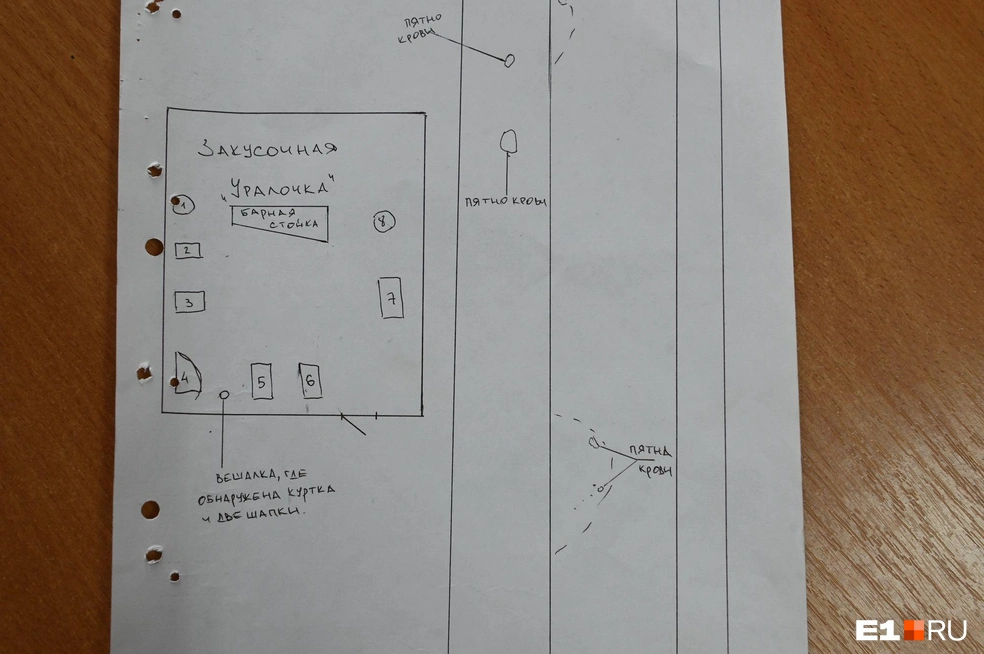 ПЯТНО
КРОВИ
ЗАКУСОЧНАЯ
"УРАЛОЧКА"
БАРНАЯ
СТОЙКА
1
2
3
4
5
6
7
8
ПЯТНО КРОВИ
ВЕШАЛКА, ГДЕ
ОБНАРУЖЕНА КУРТКА
И ДВЕ ШАПКИ.
ПЯТНА
КРОВИ
E1.RU